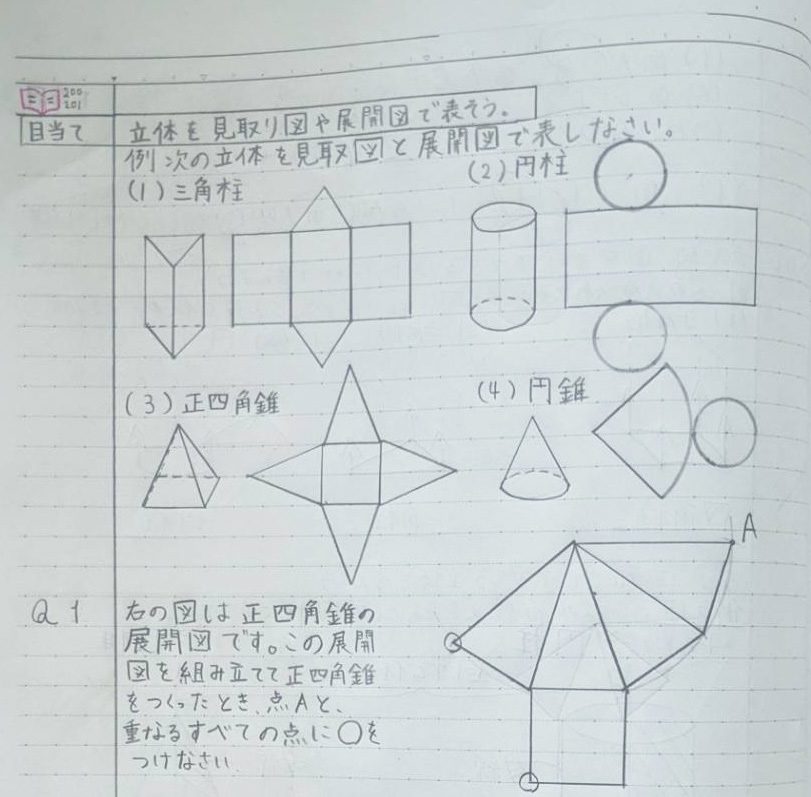 200
201
目当て
立体を見取り図や展開図で表そう。
例 次の立体を見取図と展開図で表しなさい。
(1)三角柱
(2)円柱
(3)正四角錐
(4)円錐
A
Q1
右の図は正四角錐の
展開図です。この展開
図を組み立てて正四角錐
をつくったとき、点Aと、
重なるすべての点に○を
つけなさい